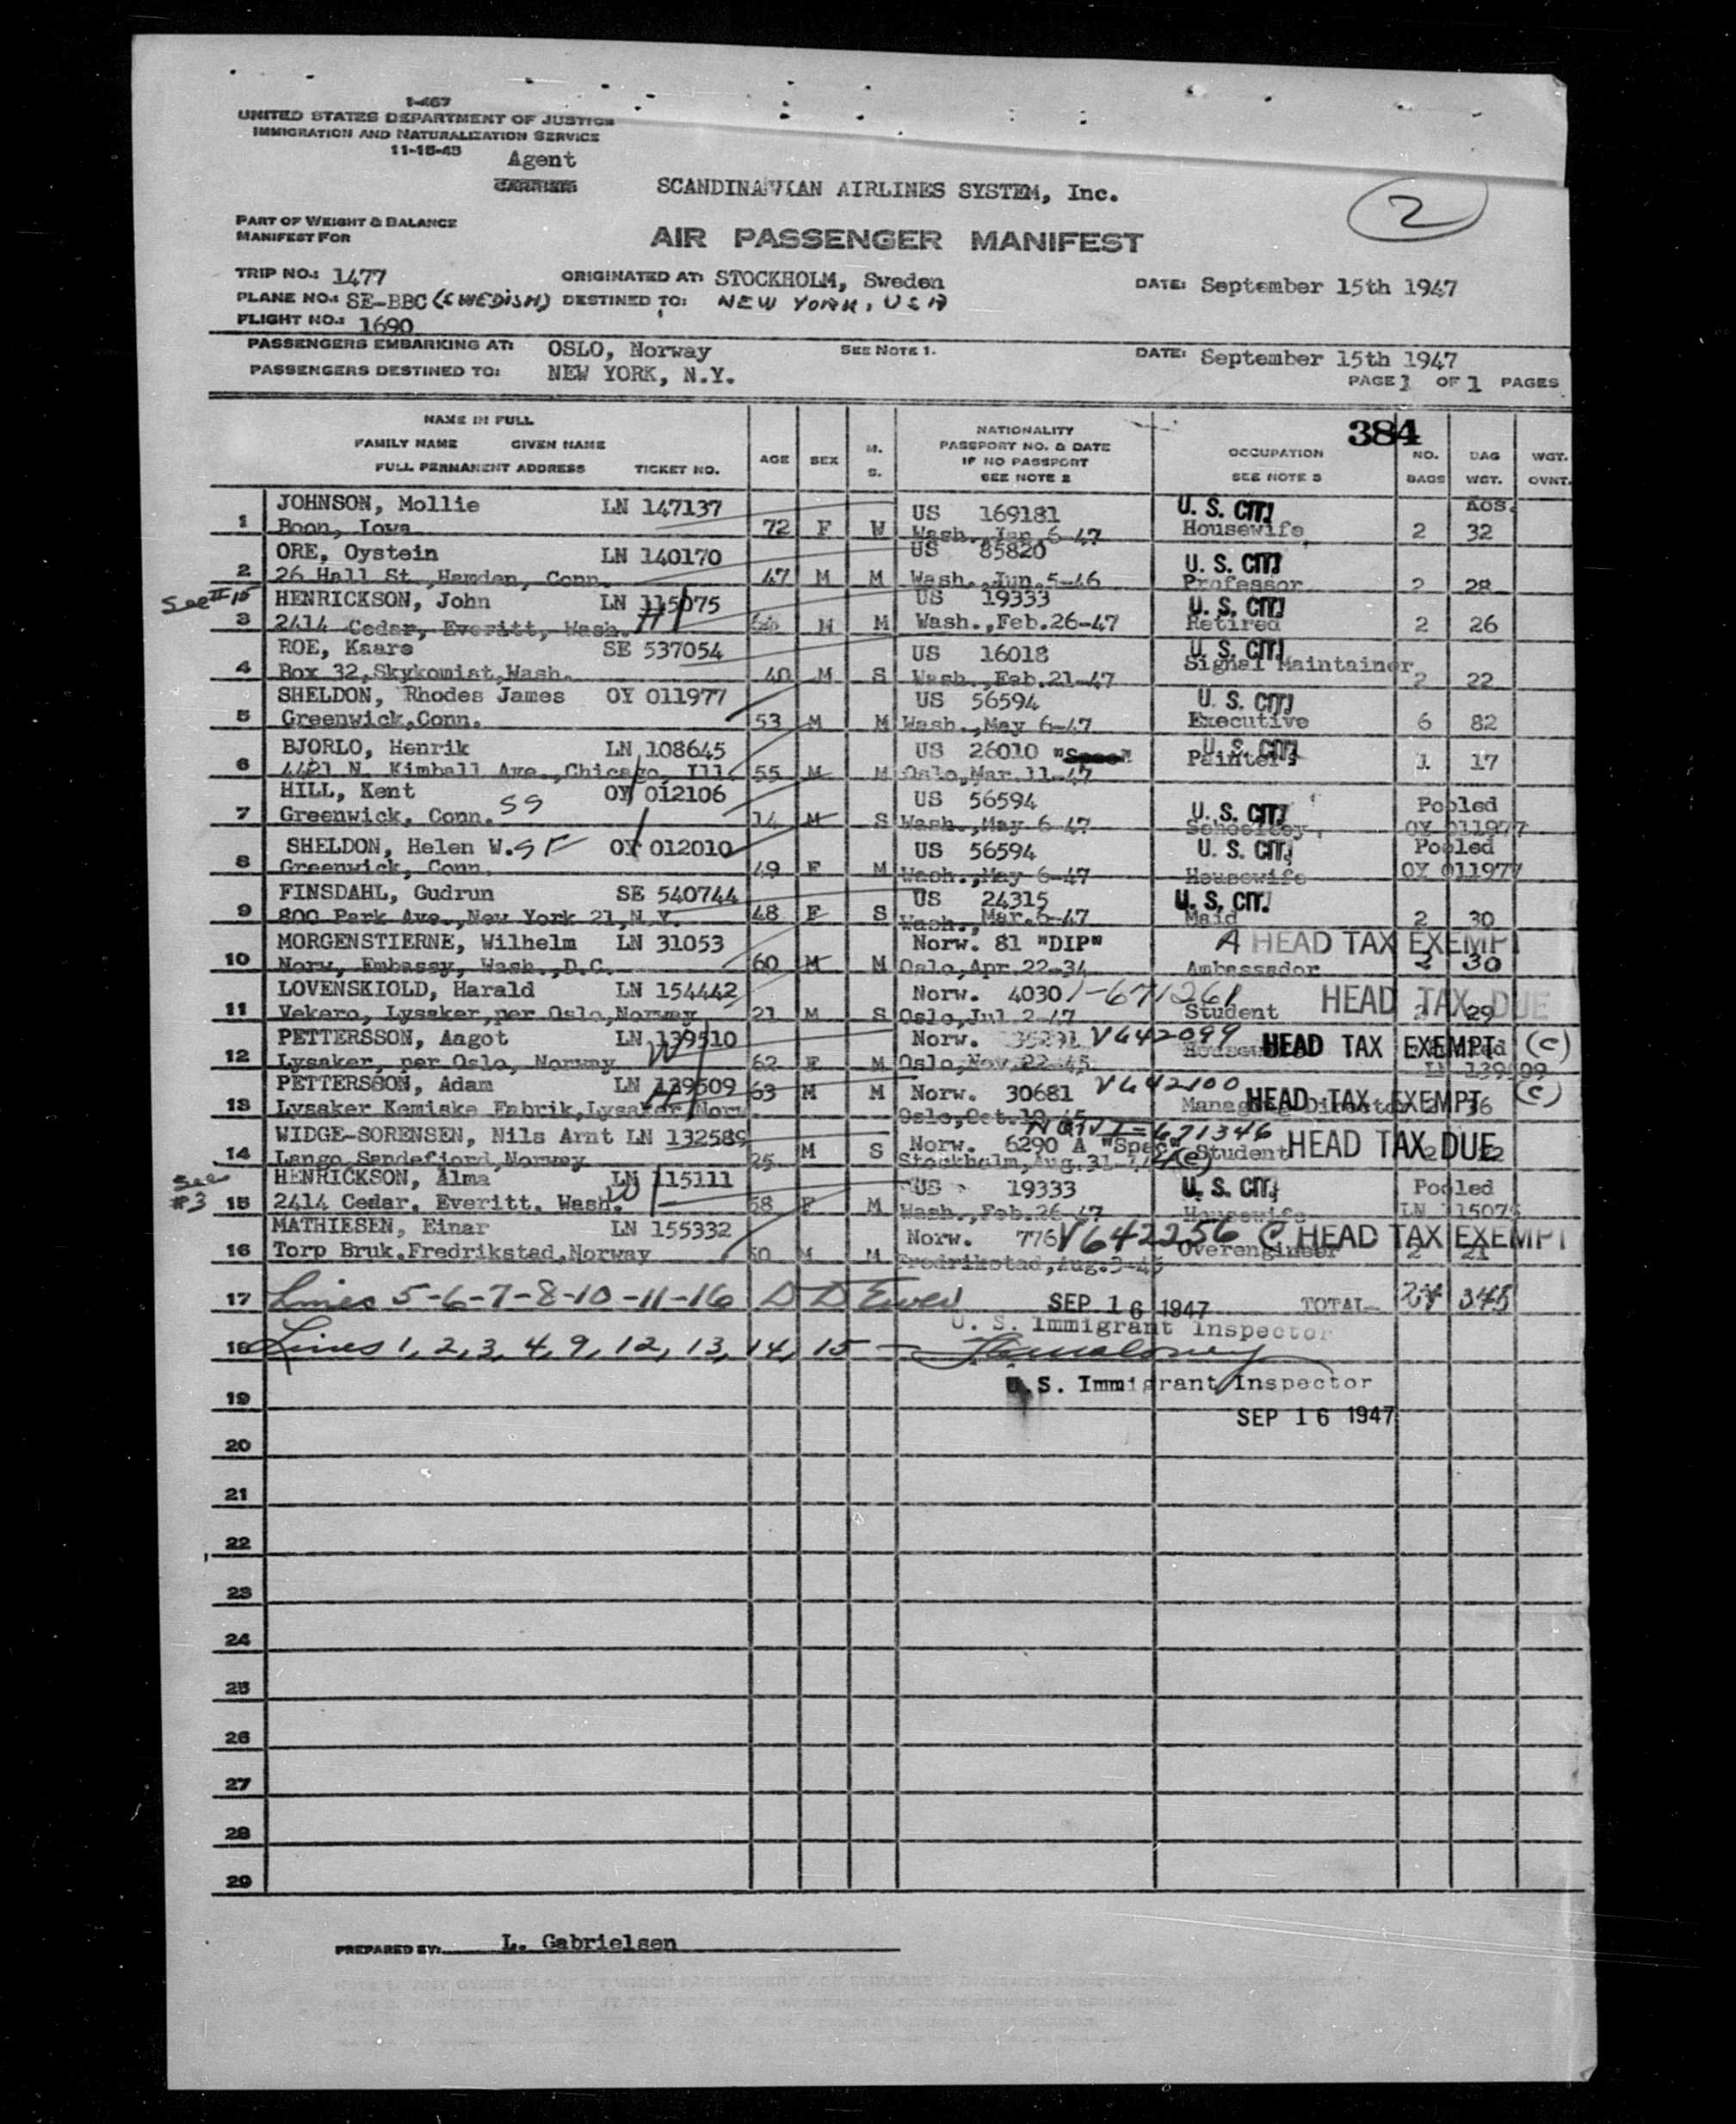 1-467
UNITED STATES DEPARTMENT OF JUSTICE
IMMIGRATION AND NATURALIZATION SERVICE
11-15-43
Agent
CARRIER SCANDINAVIAN AIRLINES SYSTEM, Inc.
2
PART OF WEIGHT & BALANCE
MANIFEST FOR
AIR PASSENGER MANIFEST
TRIP NO.: 1477 ORIGINATED AT: STOCKHOLM, Sweden DATE: September 15th 1947
PLANE NO.: SE-BBC (SWEDISH) DESTINED TO: NEW YORK, USA
FLIGHT NO.: 1690
PASSENGERS EMBARKING AT: OSLO, Norway SEE NOTE 1. DATE: September 15th 1947
PASSENGERS DESTINED TO: NEW YORK, N.Y.
PAGE 1 OF 1 PAGES
384
NAME IN FULL
FAMILY NAME GIVEN NAME
FULL PERMANENT ADDRESS TICKET NO.
AGE SEX M. S.
NATIONALITY
PASSPORT NO. & DATE
IF NO PASSPORT
SEE NOTE 2
OCCUPATION
SEE NOTE 3
NO. BAGS
BAG WGT.
WGT. OVNT.
KOS.
JOHNSON, Mollie LN 147137 US 169181 U. S. CIT.
1 Boon, Iowa 72 F W Wash., Jan. 6-47 Housewife 2 32
ORE, Oystein LN 140170 US 85820 U. S. CIT.
2 26 Hall St., Hamden, Conn. 47 M M Wash., Jun. 5-46 Professor 2 28
See # 15 HENRICKSON, John LN 115075 US 19333 U. S. CIT.
3 2414 Cedar, Everitt, Wash. H M M Wash., Feb.26-47 Retired 2 26
ROE, Kaare SE 537054 US 16018 U. S. CIT.
4 Box 32, Skykomist, Wash. 40 M S Wash., Feb.21-47 Signal Maintainer 2 22
SHELDON, Rhodes James OY 011977 US 56594 U. S. CIT.
5 Greenwick, Conn. 53 M M Wash., May 6-47 Executive 6 82
BJORLO, Henrik LN 108645 US 26010 "Spec" U. S. CIT.
6 4421 N. Kimball Ave., Chicago, Ill. 55 M M Oslo, Mar. 11-47 Painter 1 17
HILL, Kent OY 012106 US 56594 U. S. CIT. Pooled
7 Greenwick, Conn. SS 14 M S Wash., May 6-47 Schoolboy, OY 011977
SHELDON, Helen W. SF OY 012010 US 56594 U. S. CIT. Pooled
8 Greenwick, Conn. 49 F M Wash., May 6-47 Housewife OY 011977
FINSDAHL, Gudrun SE 540744 US 24315 U. S. CIT.
9 800 Park Ave., New York 21, N.Y. 48 F S Wash., Mar. 6-47 Maid 2 30
MORGENSTIERNE, Wilhelm LN 31053 Norw. 81 "DIP" A HEAD TAX EXEMPT
10 Norw, Embassy, Wash., D.C. 60 M M Oslo, Apr. 22-34 Ambassador 2 30
LOVENSKIOLD, Harald LN 154442 Norw. 4030 1-671261 HEAD TAX DUE
11 Vekero, Lysaker, per Oslo, Norway 21 M S Oslo, Jul. 2-47 Student 2 29
PETTERSSON, Aagot LN 139510 Norw. V642099 HEAD TAX EXEMPT (C)
12 Lysaker, per Oslo, Norway W 62 F M Oslo, Nov. 22-45 LN 139509
PETTERSSON, Adam LN 139509 63 M M Norw. 30681 V642100 HEAD TAX EXEMPT (C)
13 Lysaker Kemiske Fabrik, Lysaker, Norw. H Oslo, Oct. 19-45 Managing Director
WIDGE-SORENSEN, Nils Arnt LN 132589 Norw. 6290 A "Spec" HEAD TAX DUE
14 Lango, Sandefjord, Norway 25 M S Stockholm, Aug. 31- Student
See #3 HENRICKSON, Alma LN 115111 US 19333 U. S. CIT. Pooled
15 2414 Cedar, Everitt, Wash. W 68 F M Wash., Feb. 26-47 Housewife LN 115075
MATHIESEN, Einar LN 155332 Norw. 776 V642256 C HEAD TAX EXEMPT
16 Torp Bruk, Fredrikstad, Norway 50 M M Fredrikstad, Aug. Overengineer 2 21
17 Lines 5-6-7-8-10-11-16 SEP 16 1947 TOTAL
U. S. Immigrant Inspector
18 Lines 1, 2, 3, 4, 9, 12, 13, 14, 15 -
U. S. Immigrant Inspector
19
SEP 16 1947
20
21
22
23
24
25
26
27
28
29
PREPARED BY: L. Gabrielsen